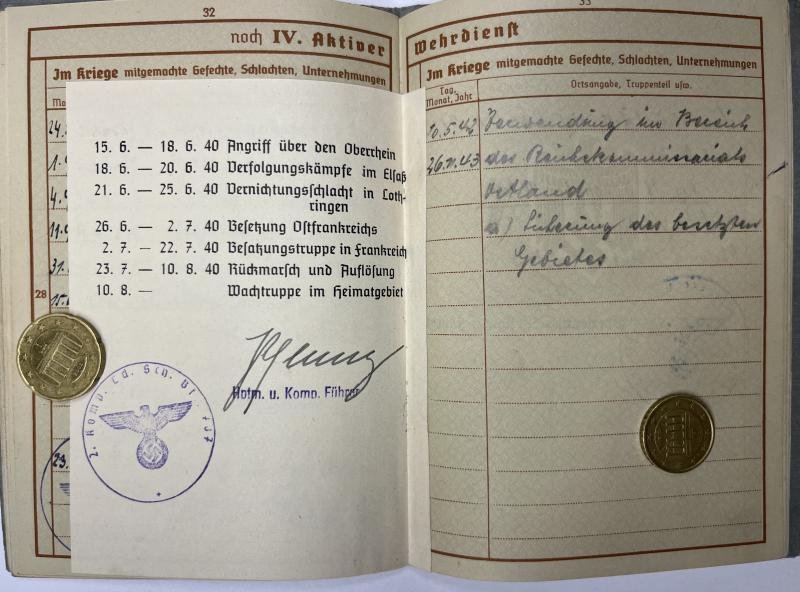 32
noch IV. Aktiver
Im Kriege mitgemachte Gefechte, Schlachten, Unternehmungen
24.
1.
4.
11.
31.
28
15.
23.
15. 6. — 18. 6. 40 Angriff über den Oberrhein
18. 6. — 20. 6. 40 Verfolgungskämpfe im Elsaß
21. 6. — 25. 6. 40 Vernichtungsschlacht in Loth-
ringen
26. 6 — 2. 7. 40 Besetzung Ostfrankreichs
2. 7. — 22. 7. 40 Besatzungstruppe in Frankreich
23. 7. — 10. 8. 40 Rückmarsch und Auflösung
10. 8. — Wachtruppe im Heimatgebiet
Hptm. u. Komp. Führer
2. Komp. Ld. Sch. Btl.
33
Wehrdienst
Im Kriege mitgemachte Gefechte, Schlachten, Unternehmungen
Tag, Monat, Jahr
Ortsangabe, Truppenteil usw.
20.5.42 Verwendung im Bereich
des Reichskommissariats
Ostland
a) Sicherung des besetzten
Gebietes